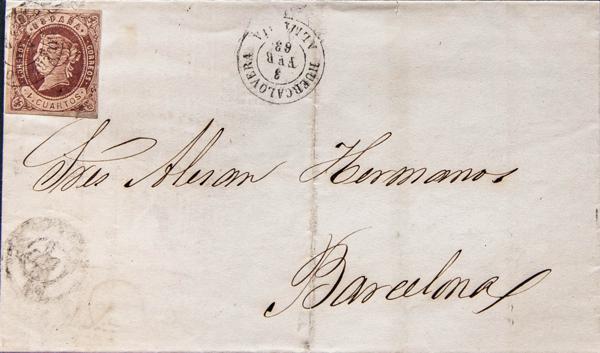 ESPAÑA
CORREOS CORREOS
4 CUARTOS
HUERCALOVERA
3
FEB
63
Sres Alesan Hermanos
Barcelona